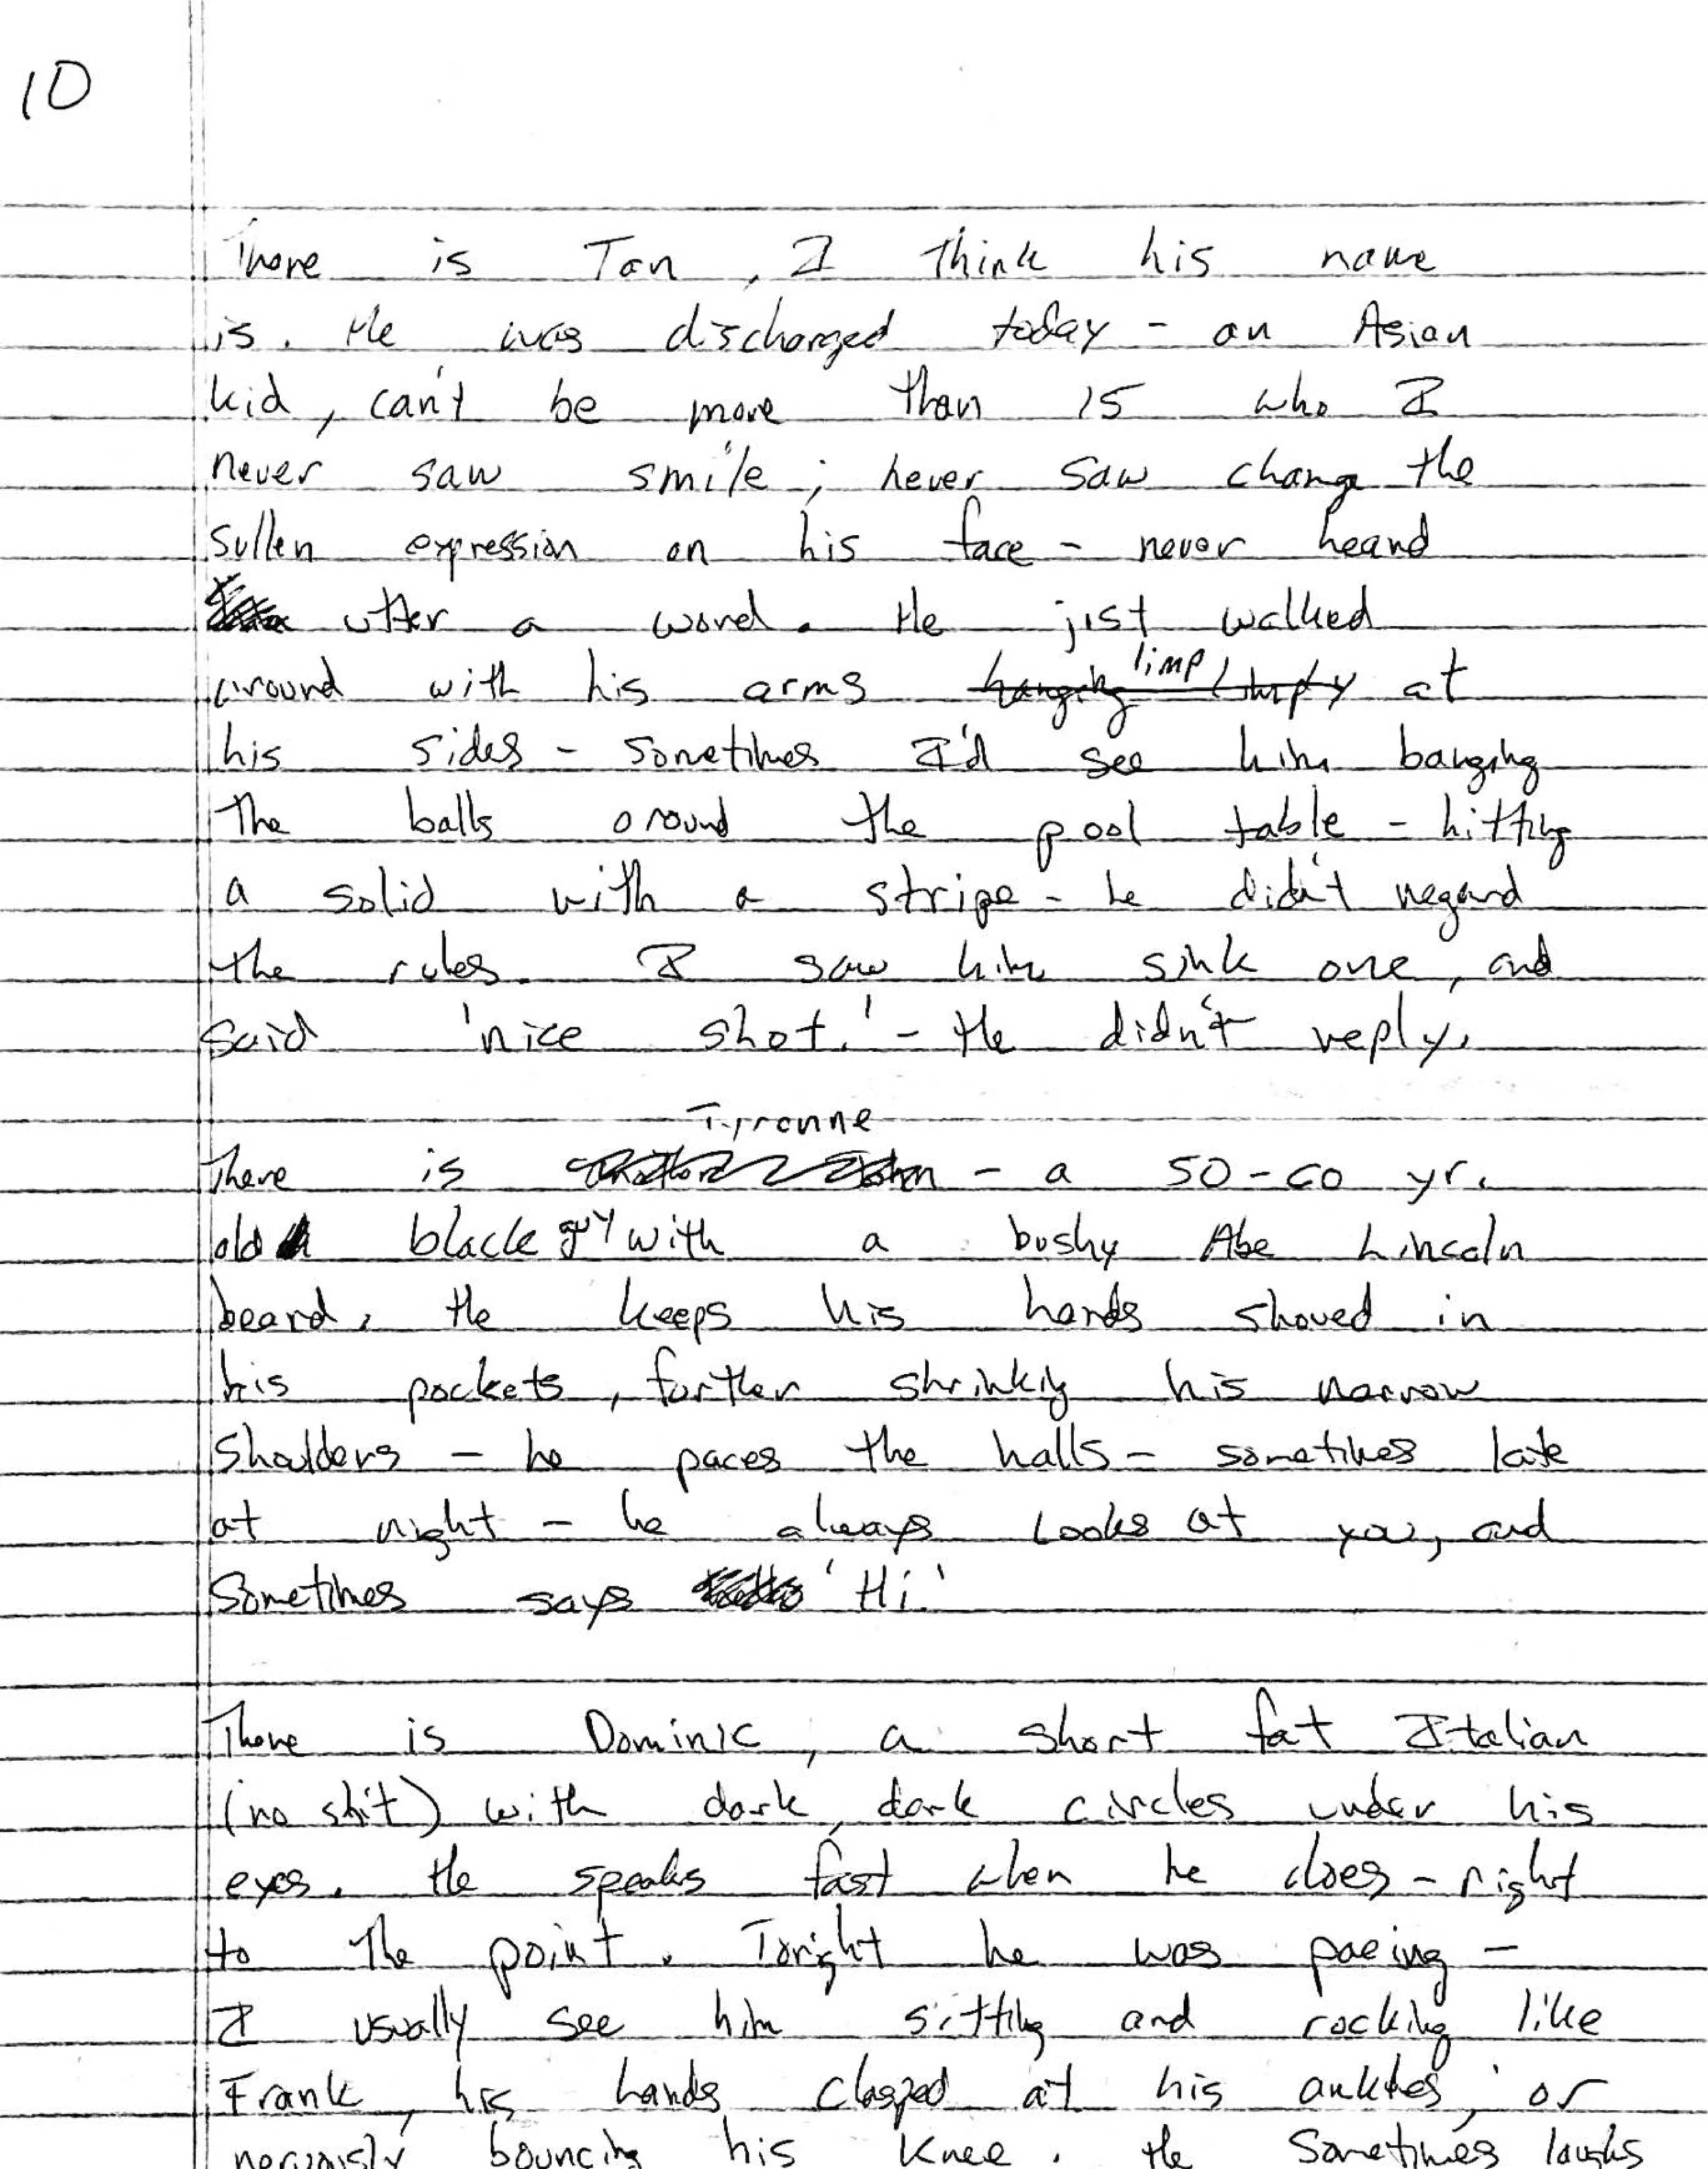 10
There is Tan, I think his name
is. He was discharged today - an Asian
kid, can't be more than 15 who I
never saw smile; never saw change the
sullen expression on his face - never heard
utter a word. He jist walked
around with his arms hanging limply limp at
his sides - sometimes I'd see him banging
the balls around the pool table - hitting
a solid with a stripe - he didn't regard
the rules. I saw him sink one, and
said 'nice shot.' - He didn't reply.
Tyronne
There is - a 50-60 yr.
old black guy with a bushy Abe Lincoln
beard. He keeps his hands shoved in
his pockets, further shrinking his narrow
shoulders - he paces the halls - sometimes late
at night - he always looks at you, and
sometimes says 'Hi.'
There is Dominic, a short fat Italian
(no shit) with dark, dark circles under his
eyes. He speaks fast when he does - right
to the point. Tonight he was pacing -
I usually see him sitting and rocking like
Frank, his hands clasped at his ankles, or
nervously bouncing his knee. He sometimes laughs